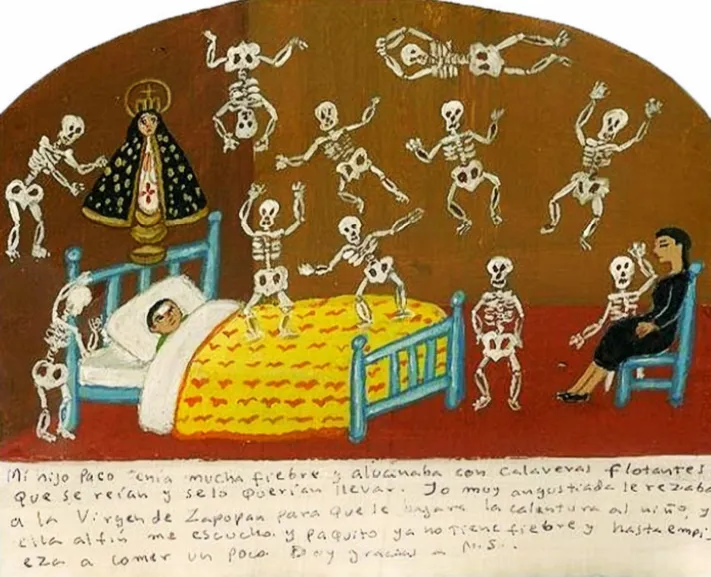 Mi hijo Paco tenia mucha fiebre y alucinaba con calaveras flotantes
que se reían y se lo querían llevar. Yo muy angustiada le rezaba
a la Virgen de Zapopan para que le bajara la calentura al niño, y
ella al fin me escucho y paquito ya no tiene fiebre y hasta empi
eza a comer un poco Doy gracias a M.S..